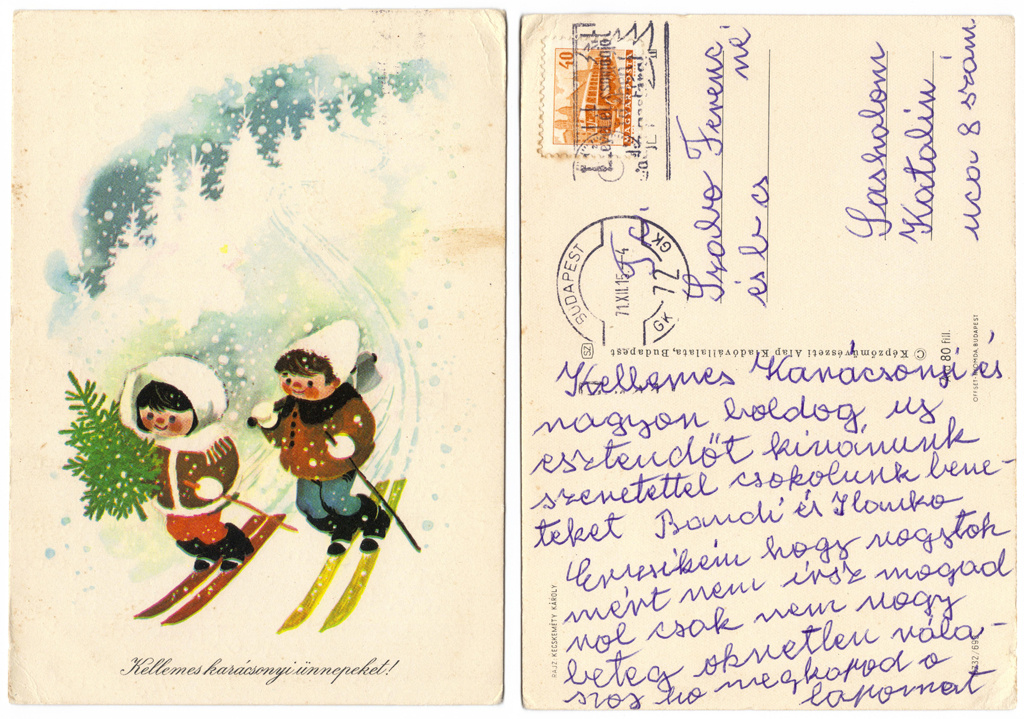 Kellemes karácsonyi ünnepeket!
40
MAGYAR POSTA
BUDAPEST
71.XII.15.-4
GK 72 GK
Szabo Ferenc
né
és b cs
Sashalom
Katalin
uca 8 szám
© Képzőművészeti Alap Kiadóvállalata, Budapest
80 fill.
RAJZ: KECSKEMÉTY KÁROLY
Kellemes Karácsonyi és
nagyon boldog uj
esztendőt kivánunk
szeretettel csokolunk bene-
teket Bandi és Ilonka
hogy vagytok
mért nem irsz magad
rol csak nem vagy
beteg okvetlen vála-
szoj ha megkapod a
lapomat